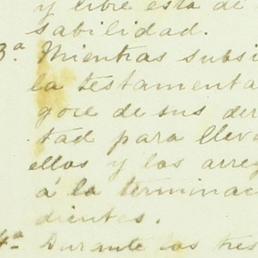 y libre esta de
sabilidad.
3ª Mientras subsi
la testamenta
goce de sus der
tad para lleva
ellos y los arreg
á la terminac
dientes.
4ª Durante los tres